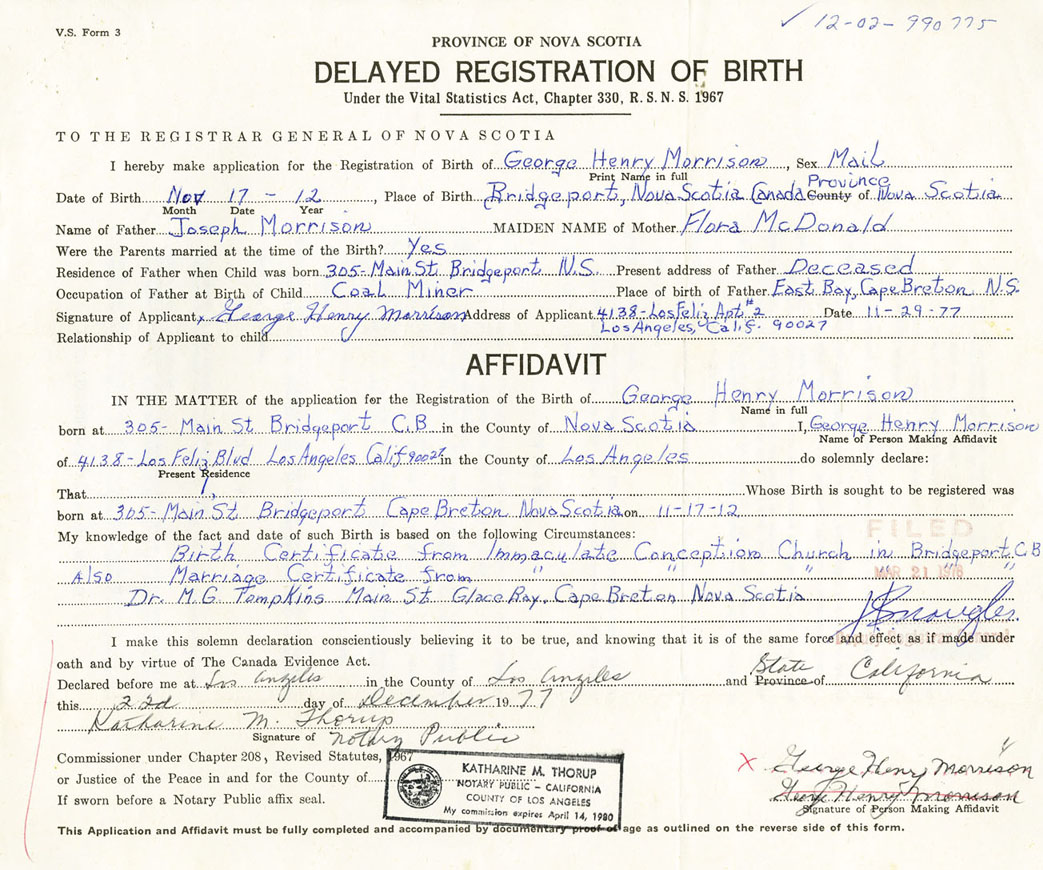 V.S. Form 3
✓ 12-02-990775
PROVINCE OF NOVA SCOTIA
DELAYED REGISTRATION OF BIRTH
Under the Vital Statistics Act, Chapter 330, R. S. N. S. 1967
TO THE REGISTRAR GENERAL OF NOVA SCOTIA
I hereby make application for the Registration of Birth of George Henry Morrison, Sex Mail
Print Name in full
Province
Date of Birth Nov 17 - 12, Place of Birth Bridgeport, Nova Scotia Canada County of Nova Scotia
Month Date Year
Name of Father Joseph Morrison MAIDEN NAME of Mother Flora McDonald
Were the Parents married at the time of the Birth? Yes
Residence of Father when Child was born 305- Main St Bridgeport N.S. Present address of Father Deceased
Occupation of Father at Birth of Child Coal Miner Place of birth of Father East Bay, Cape Breton N.S.
Signature of Applicant x George Henry Morrison Address of Applicant 4138-Los Feliz Apt #2 Date 11-29-77
Los Angeles, Calif. 90027
Relationship of Applicant to child
AFFIDAVIT
IN THE MATTER of the application for the Registration of the Birth of George Henry Morrison
Name in full
born at 305- Main St Bridgeport C.B in the County of Nova Scotia I, George Henry Morrison
Name of Person Making Affidavit
of 4138-Los Feliz Blvd Los Angeles Calif 90027 in the County of Los Angeles do solemnly declare:
Present Residence
That Whose Birth is sought to be registered was
born at 305- Main St Bridgeport Cape Breton Nova Scotia on 11-17-12
My knowledge of the fact and date of such Birth is based on the following Circumstances:
FILED
Birth Certificate from Immaculate Conception Church in Bridgeport, C.B
Also Marriage Certificate from " " " " " "
MAR 21 1978
Dr. M.G. Tompkins Main St. Glace Bay, Cape Breton Nova Scotia
I make this solemn declaration conscientiously believing it to be true, and knowing that it is of the same force and effect as if made under
oath and by virtue of The Canada Evidence Act.
State
Declared before me at Los Angeles in the County of Los Angeles and Province of California
this 22d day of December 1977
Katharine M. Thorup
Signature of Notary Public
Commissioner under Chapter 208, Revised Statutes, 1967
or Justice of the Peace in and for the County of
If sworn before a Notary Public affix seal.
KATHARINE M. THORUP
NOTARY PUBLIC - CALIFORNIA
COUNTY OF LOS ANGELES
My commission expires April 14, 1980
X George Henry Morrison
George Henry Morrison
Signature of Person Making Affidavit
This Application and Affidavit must be fully completed and accompanied by documentary proof of age as outlined on the reverse side of this form.